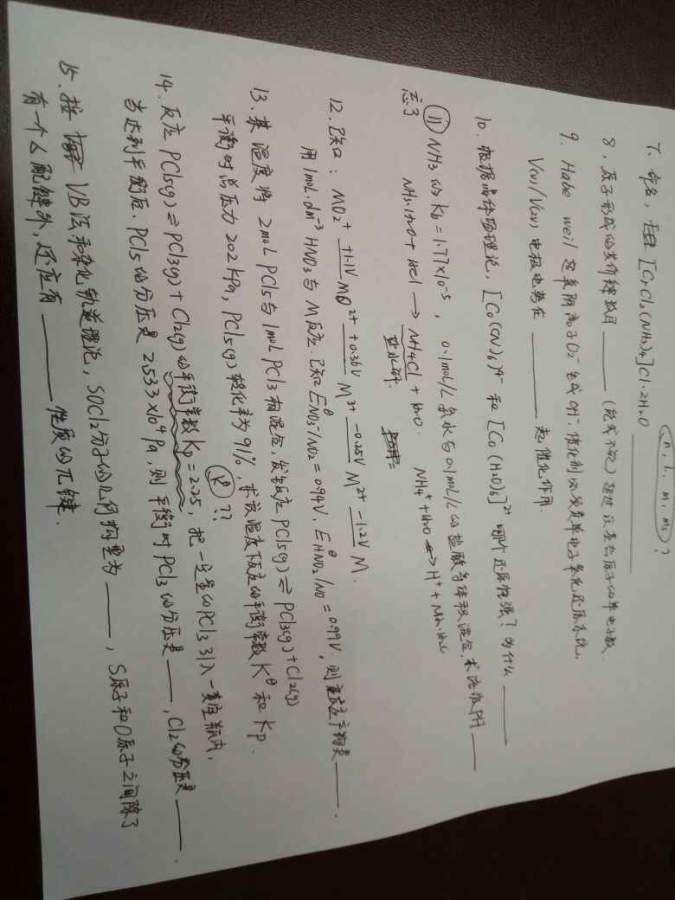 (n, l, m, ms)?
7. 命名, [CrCl2(NH3)4]Cl·2H2O ______
8. 原子形成的共价键数目 ______ (能或不能) 超过该基态原子的单电子数.
9. Habe weil 定氧阴离子O2⁻生成OH⁻. 催化剂
V(IV)/V(V) 电极电势在 ______ 起催化作用.
10. 根据晶体场理论, [Co(CN)6]4- 和 [Co(H2O)6]2+ 哪个还原性强? 为什么 ______
⑪ NH3 的 Kb = 1.77×10-5, 0.1mol/L氨水与0.1mol/L的盐酸等体积混合求溶液PH ______
忘了 NH3·H2O + HCl → NH4Cl + H2O. NH4+ + H2O ⟷ H+ + NH3·H2O
盐水解.
12. 已知: MO2+ +1.1V MO2+ +0.36V M3+ -0.25V M2+ -1.2V M.
用1mol·dm-3 HNO3 与 M反应. 已知 EθNO3-/NO2 = 0.94V. EθHNO2/NO = 0.99V, 则 反应产物是 ______.
13. 某温度将 2molPCl5与1molPCl3相混合, 发生反应 PCl5(g) ⇌ PCl3(g) + Cl2(g)
平衡时总压力 202 kPa, PCl5(g) 转化率为91%, 求该温度下反应的平衡常数 Kθ 和 Kp.
14. 反应 PCl5(g) ⇌ PCl3(g) + Cl2(g) 的平衡常数 Kp = 2.25, 把一定量的PCl5引入一真空瓶内,
当达到平衡后. PCl5的分压是 2.533×104Pa, 则平衡时PCl3的分压是 ______, Cl2的分压是 ______.
15. 按 VB法和杂化轨道理论, SOCl2分子的几何构型为 ______, S原子和O原子之间除了
有一个σ配键外, 还应有 ______ 性质的π键.